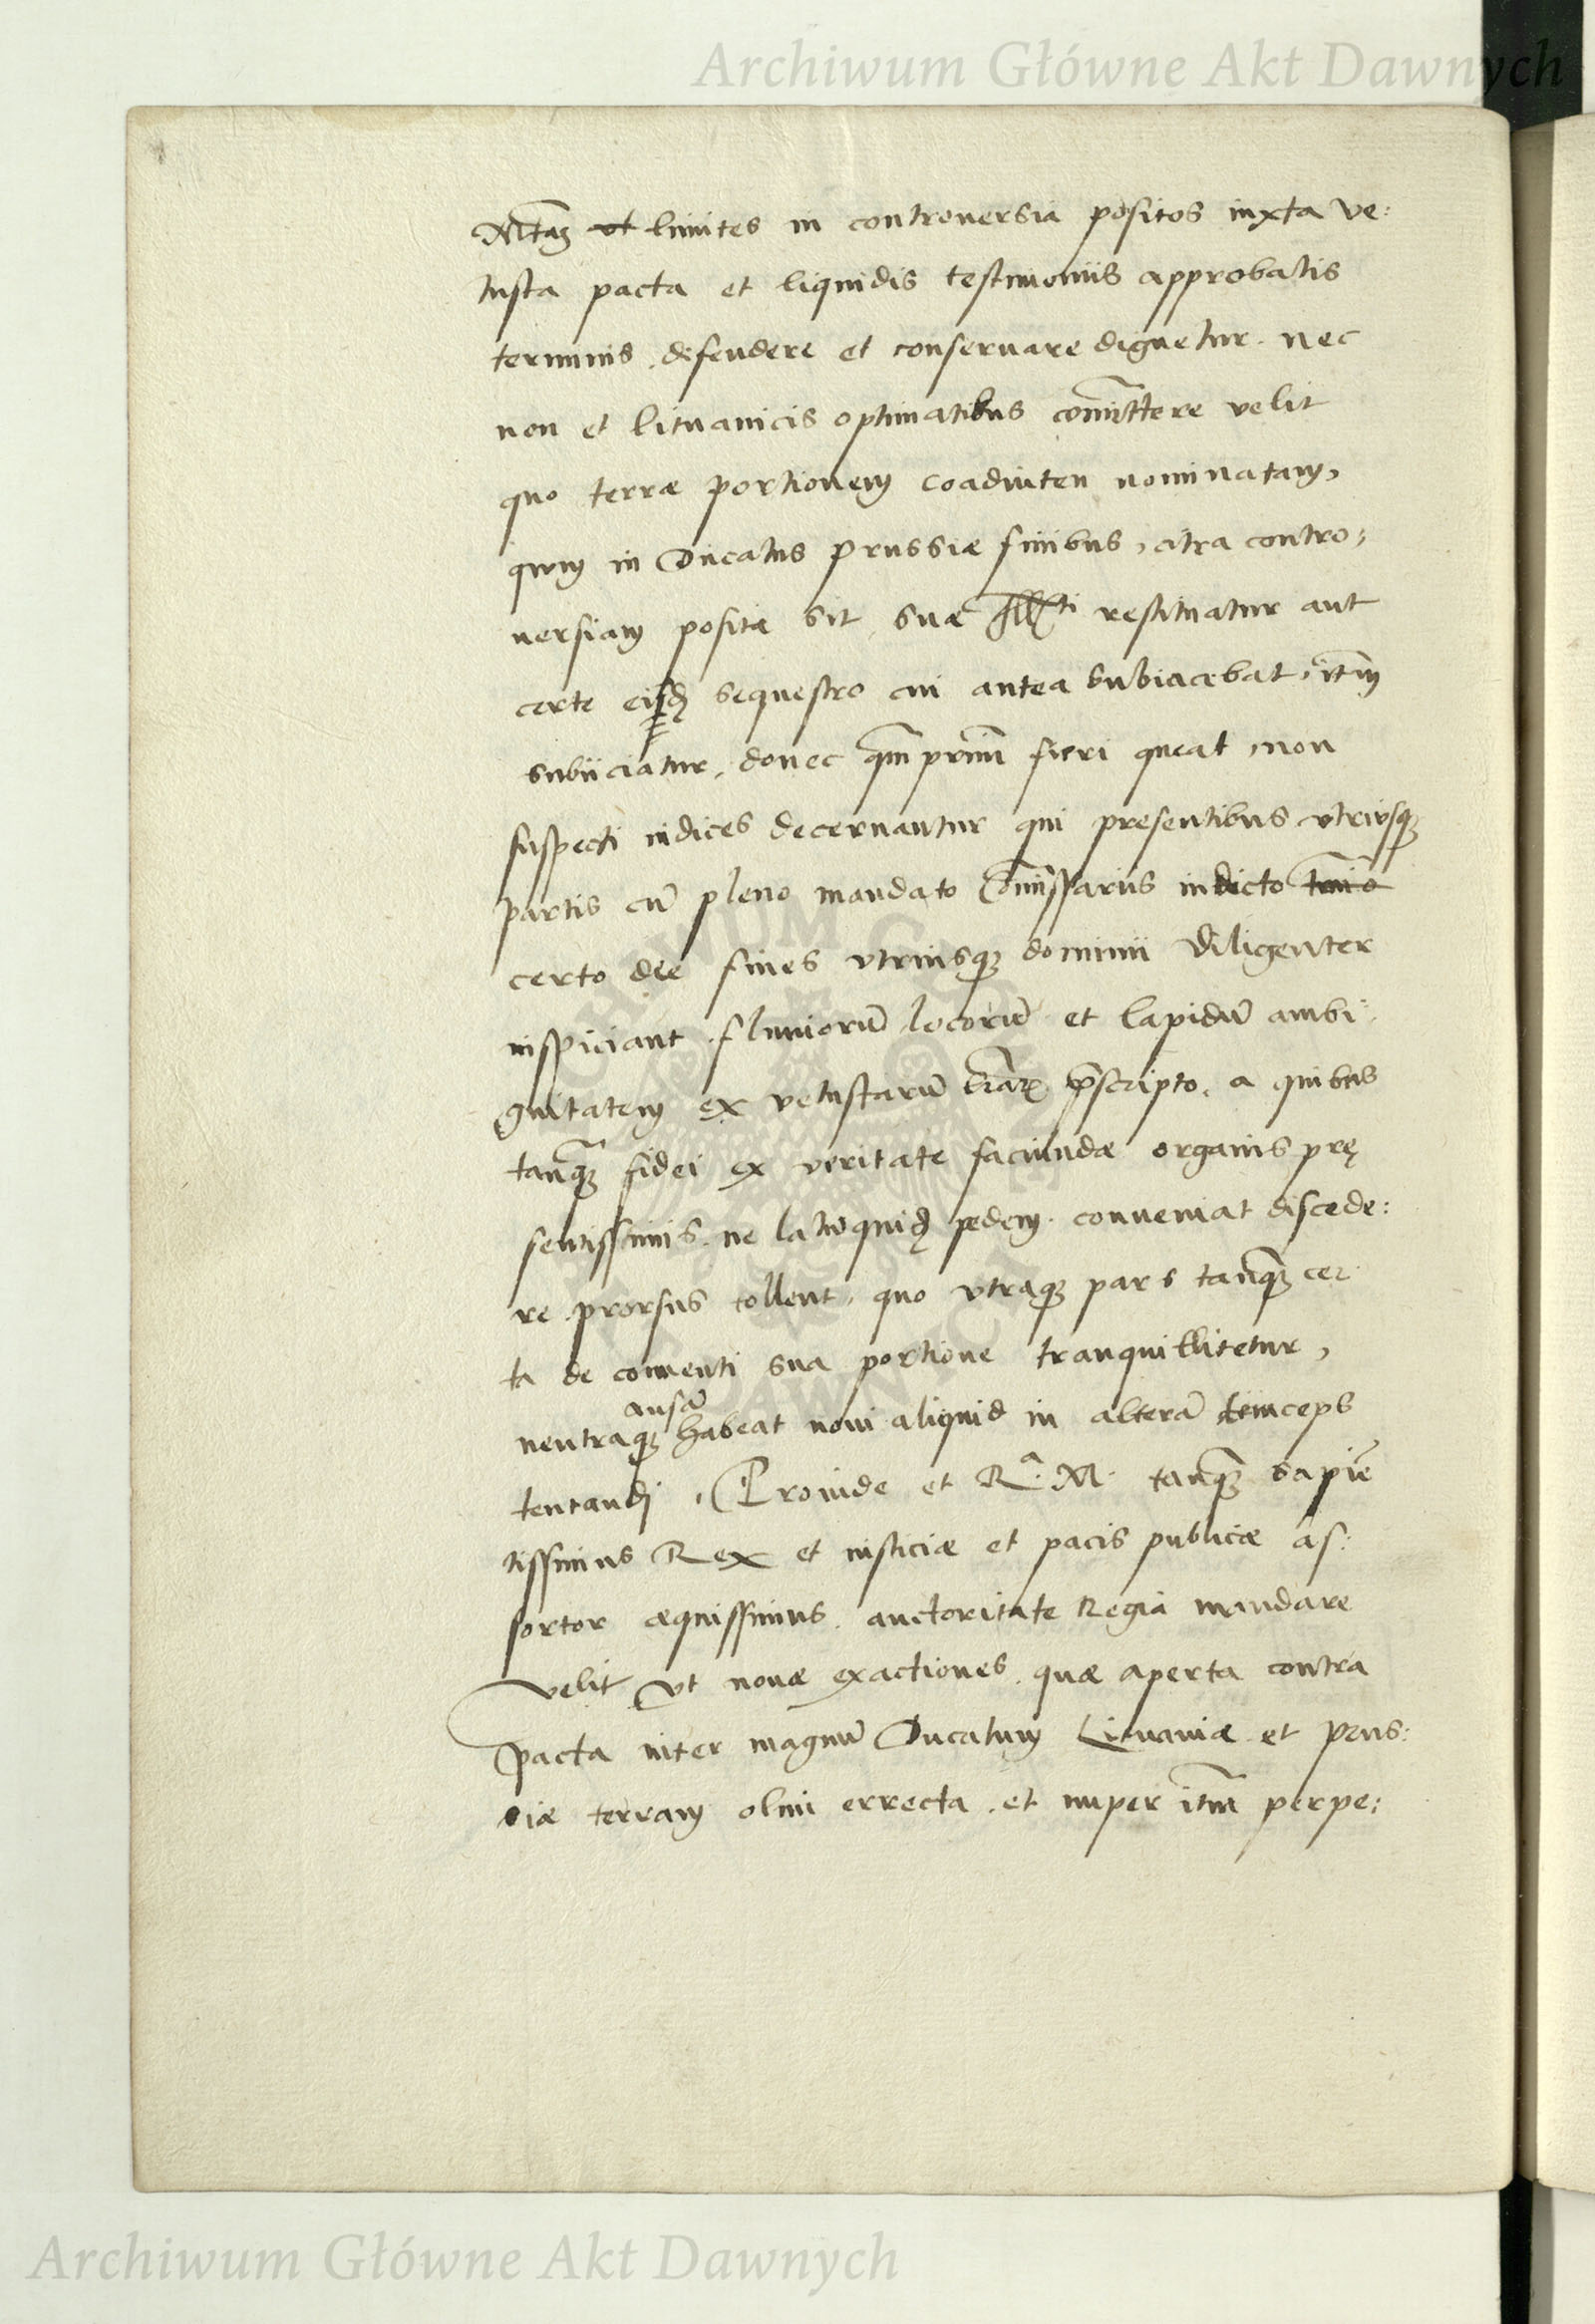 Archiwum Główne Akt Dawnych
Mtem ut limites in controuersia positos iuxta ve:
tusta pacta et liquidis testimoniis approbatis
terminis, defendere et conseruare dignetur. nec
non et lituanicis optimatibus com̄ittere velit
quo terræ portionem coadiuten nominatam,
quæ in Ducatus Prussiæ finibus, citra contro:
uersiam posita sit, suæ Ill^ti restituatur aut
certe eisd. sequestro cui antea subiacebat, itm̄
subiiciatur, donec qm̄prim̄ fieri queat, non
suspecti iudices decernantur qui presentibus vtriusq;
partis cū pleno mandato Com̄issariis indicto tm̄io
certo die fines vtriusq; dominii diligenter
inspiciant, fluuiorū locorū et lapidū ambi:
guitatem ex vetustarū l̄rar̄ p̄scripto, a quibus
tanq̄; fidei ex veritate faciundæ organis prę
sentissimis, ne latū quid. pedem conueniat discede:
re prorsus tollent, quo vtraq; pars tanq̄; cer
ta de conuenti sua portione tranquillitetur,
ausā
neutraq; habeat noui aliquid in alterā deinceps
tentandi, Proinde et R^a. M. tanq̄; sapiē
tissimus Rex et iusticiæ et pacis publicæ as:
sertor æquissimus, auctoritate Regia mandare
velit, vt nouæ exactiones, quæ aperta contra
pacta inter magnū Ducatum Lituaniæ et Prus:
siæ terram olim errecta, et nuper itm̄ perpe:
Archiwum Główne Akt Dawnych